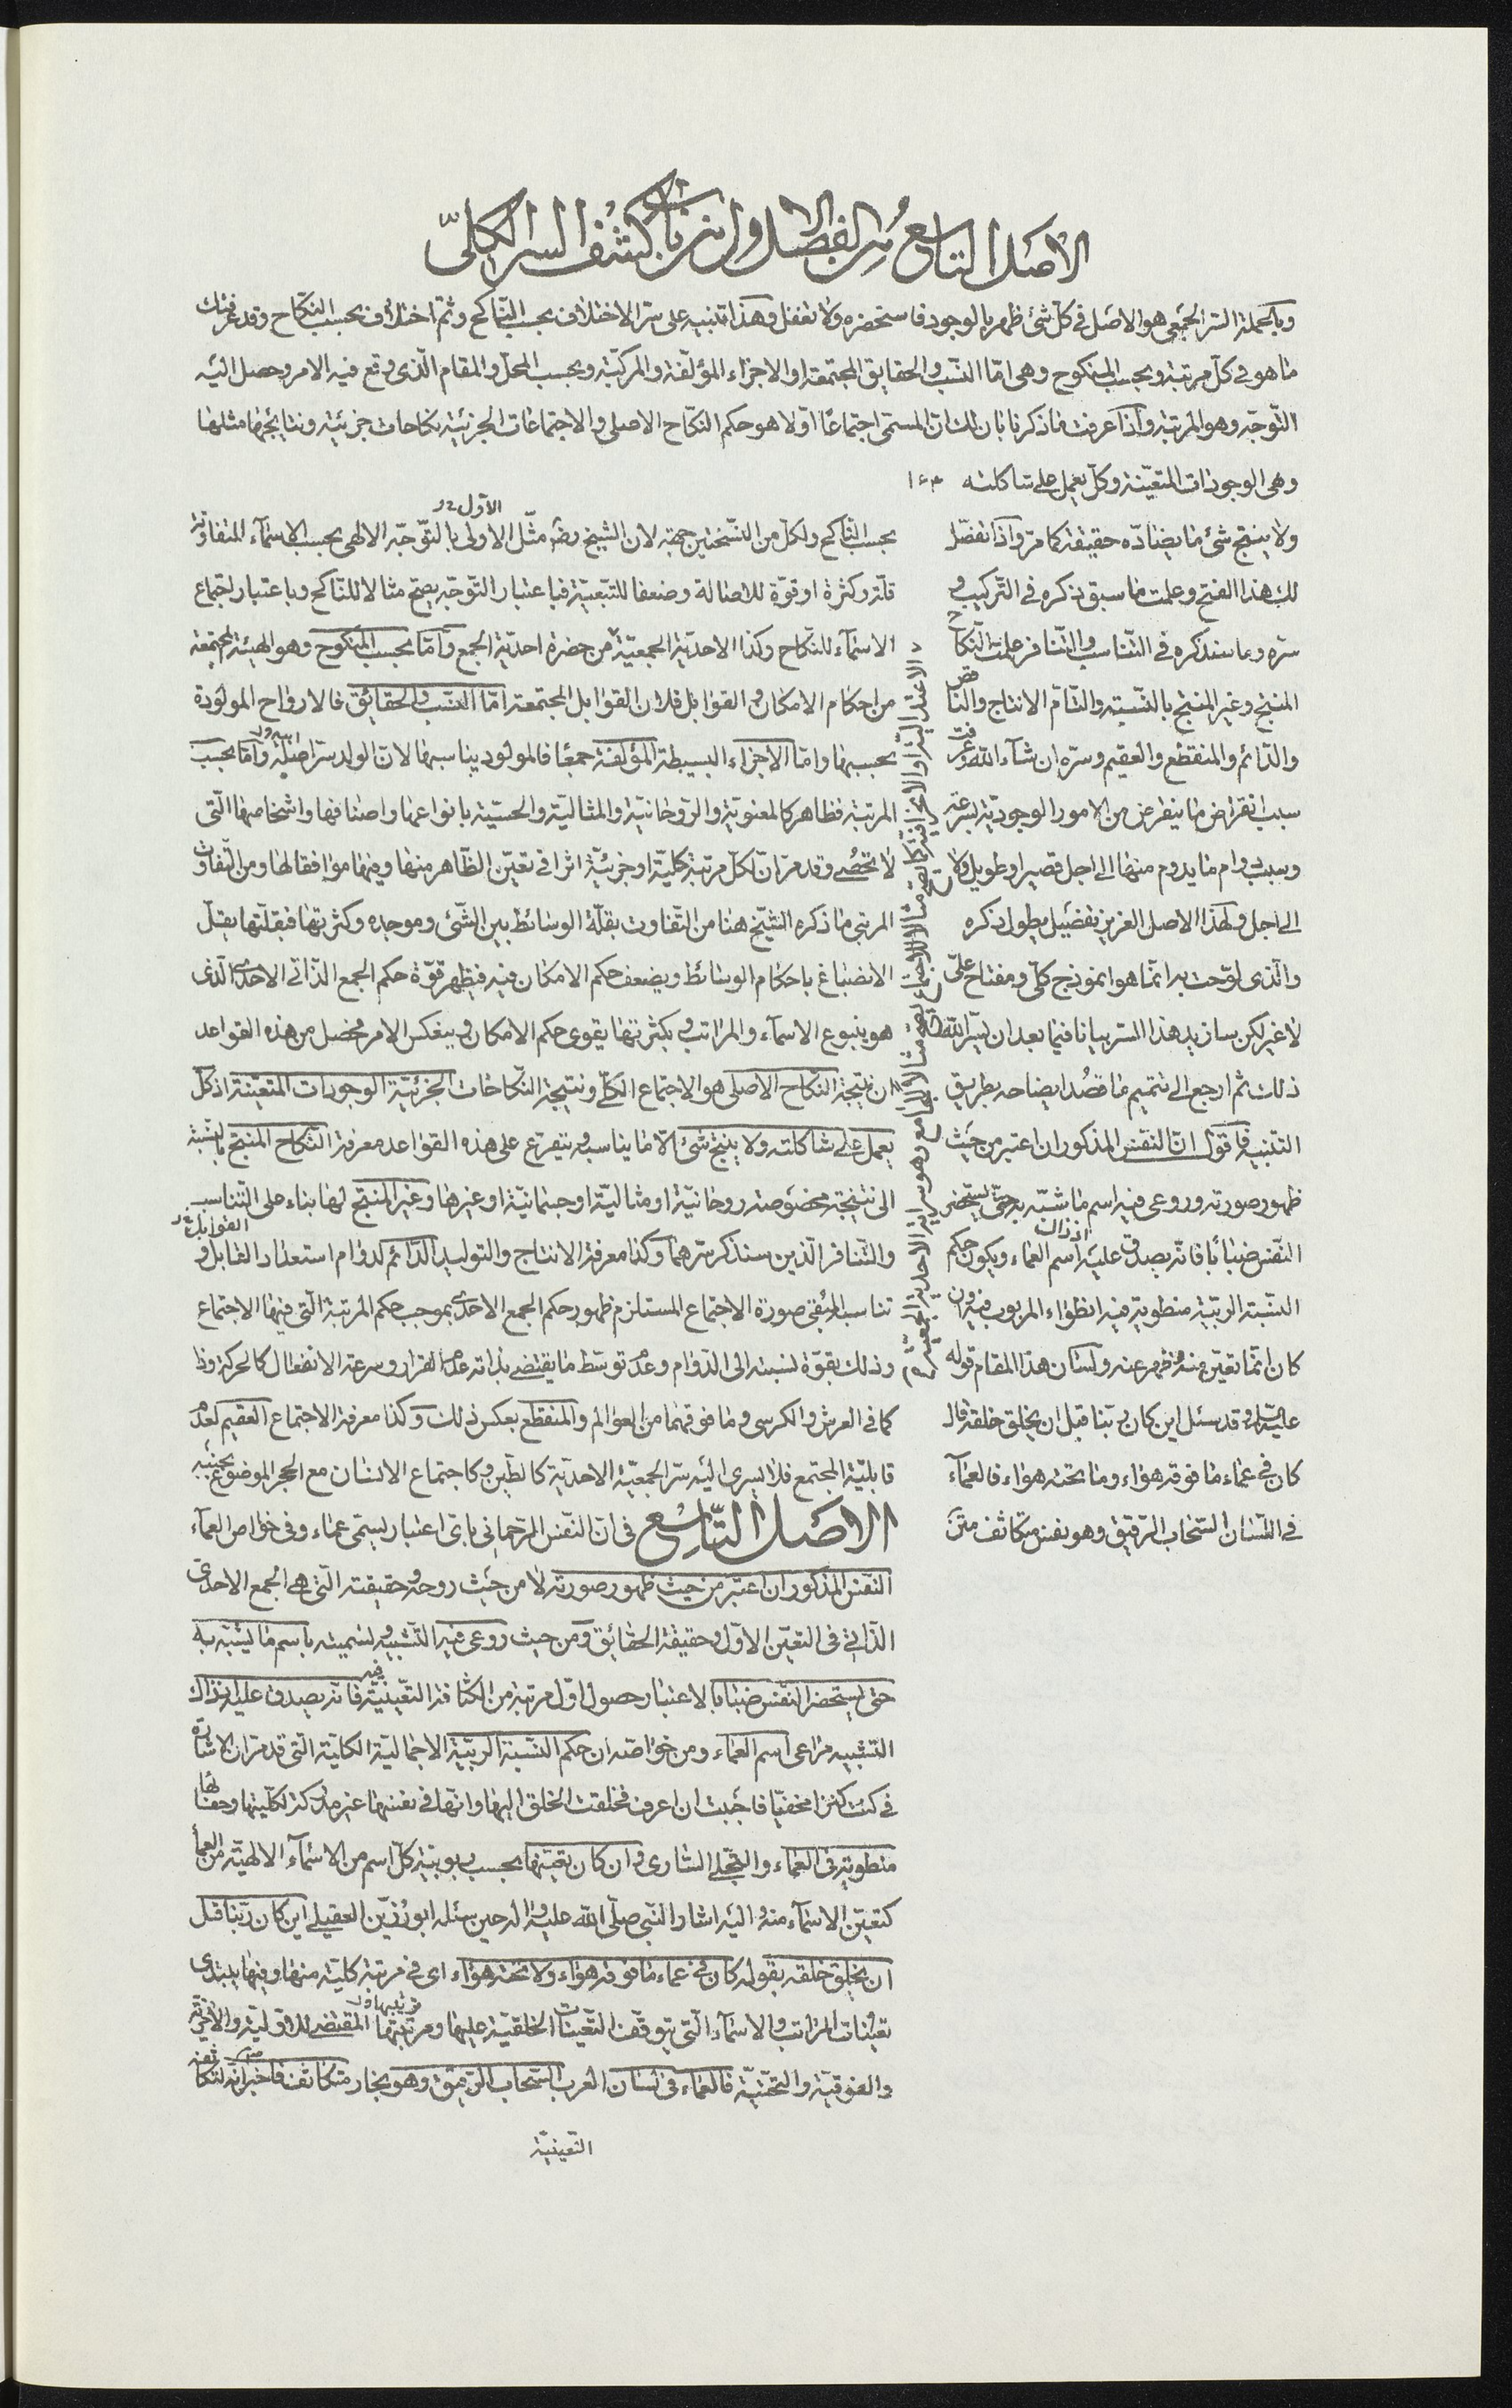 الاصل التاسع من الفصل الاول من باب كشف السر الكلىّ
وبالجملة السّر الجمعى هو الاصل فى كلّ شئ ظهر بالوجود فاستحضره ولا تغفل وهذا تنبيه على سّر الاختلاف بحسب النّاكح وثمّ اختلاف بحسب النّكاح وقد عرفتك
ما هو فى كلّ مرتبة وبحسب المنكوح وهى امّا النّسب والحقايق المجتمعة او الاجزاء المؤلّفة والمركّبة وبحسب المحلّ والمقام الّذى وقع فيه الامر وحصل اليه
التّوجّه وهو المرتبة واذا عرفت ما ذكرنا بان لك انّ المسمّى اجتماعًا اوّلا هو حكم النّكاح الاصلى والاجتماعات الجزئيّة نكاحات جزئيّة ونتايجها مثلها
وهى الوجودات المتعيّنة وكلّ يعمل على شاكلته
ولا ينتج شئ ما يضادّه حقيقة كما مرّ واذا تفصّل
لك هذا الفتح وعلمت ما سبق ذكره فى التّركيب و
سّره وما سنذكره فى التّناسب والتّنافر علمت النّكاح
المنتج وغير المنتج بالنّسبة والتّامّ الانتاج والناقص
والدّائم والمنقطع والعقيم وسّره ان شآء الله وعرفت
سبب انقراض ما ينقرض من الامور الوجوديّة بسرعة
وسبب دوام ما يدوم منها الى اجل قصير او طويل ولا
الى اجل ولهذا الاصل العزيز تفصيل يطول ذكره
والّذى لوّحت به انّما هو انموذج كلّى ومفتاح علىّ
لا غير لكن سازيد هذا السّر بيانا فيما بعد ان يسّر الله
ذلك ثم ارجع الى تتميم ما قصد ايضاحه بطريق
التنبيه فاقول انّ النّفس المذكور ان اعتبر من حيث
ظهور صورته وروعى فيه اسم ما شبّه به حتى يستحضر
النّفس ضبابًا فانّه يصدق عليه اذ ذاك اسم العماء ويكون حكم
النّسبة الربّيّة منطوية فيه انطواء المربوب فيه وان
كان انّما تعيّن منه وظهر عنه ولسان هذا المقام قوله
عليه السلم وقد سئل اين كان ربّنا قبل ان يخلق خلقه قال
كان فى عماء ما فوقه هواء وما تحته هواء فالعمآء
فى اللّسان السّحاب الرّقيق وهو نفس متكاثف متن
بحسب النّاكح ولكلّ من النّسختين جهة لان الشيخ رضه مثّل الاولى بالتّوجّه الالهى بحسب الاسمآء المتفاوتة
قلّة وكثرة او قوّة للاصالة وضعفا للتبعيّة فباعتبار التوجّه يصحّ مثالا للنّاكح وباعتبار اجتماع
الاسمآء للنّكاح وكذا الاحديّة الجمعيّة من حضرة احديّة الجمع وامّا بحسب المنكوح وهو الهيئة المجتمعة
من احكام الامكان والقوابل فلان القوابل المجتمعة امّا النّسب والحقائق فالارواح المولودة
بحسبها وامّا الاجزاء البسيطة المؤلّفة جمعًا فالمولود يناسبها لان الولد سّر ابيه وامّا بحسب
المرتبة فظاهر كالمعنويّة والرّوحانيّة والمثاليّة والحسّيّة بانواعها واصنافها واشخاصها الّتى
لا تحصى وقد مرّ انّ لكلّ مرتبة كليّة او جزئيّة اثرا فى تعيّن الظّاهر منها وفيها موافقا لها ومن التّفاوت
المرتبى ما ذكره الشّيخ هنا من التّفاوت بقلّة الوسائط بين الشّئ وموجده وكثرتها فبقلّتها يقلّ
الانصباغ باحكام الوسائط ويضعف حكم الامكان فيه فيظهر قوّة حكم الجمع الذّاتى الاحدى الّذى
هو ينبوع الاسمآء والمراتب وبكثرتها يقوى حكم الامكان وينعكس الامر فحصل من هذه القواعد
ان نتيجة النّكاح الاصلى هو الاجتماع الكلّى ونتيجة النّكاحات الجزئيّة الوجودات المتعيّنة اذ كلّ
يعمل على شاكلته ولا ينتج شئ الّا ما يناسبه ويتفرّع على هذه القواعد معرفة النّكاح المنتج بالنّسبة
الى نتيجة مخصوصة روحانيّة او مثاليّة او جسمانيّة او غيرها وغير المنتج لها بناء على التّناسب
والتّنافر الّذين سنذكر سّرهما وكذا معرفة الانتاج والتوليد الدّائم لدوام استعداد القابل و
تناسبه فيبقى صورة الاجتماع المستلزم ظهور حكم الجمع الاحدى بموجب حكم المرتبة الّتى فيها الاجتماع
وذلك بقوّة نسبته الى الدّوام وعدم توسّط ما يقتضى بذاته عدم القرار وسرعة الانفعال كالحركة وذا
كما فى العرش والكرسى وما فوقهما من العوالم والمنقطع بعكس ذلك وكذا معرفة الاجتماع العقيم لعدم
قابليّة المجتمع فلا يسرى اليه سّر الجمعيّة الاحديّة كالطّين وكاجتماع الانسان مع الحجر الموضوع بجنبه
الاصل التّاسع فى انّ النّفس الرّحمانى باىّ اعتبار يسمّى عماء وفى خواص العمآء
النّفس المذكور ان اعتبر من حيث ظهور صورته لا من حيث روحه وحقيقته الّتى هى الجمع الاحدى
الذّاتى فى التعيّن الاوّل وحقيقة الحقائق ومن حيث روعى فيه التّشبيه وتسميته باسم ما يشبّه به
حتى يستحضر النّفس ضبابا بالاعتبار حصول اوّل مرتبة من الكثافة التعيّنيّة فيه فانّه يصدق عليه اذ ذاك
التّشبيه مراعى اسم العماء ومن خواصّه ان حكم النّسبة الربّيّة الاجماليّة الكليّة الّتى قد مرّ ان الاشارة
فى كنت كنزا مخفيّا فاحببت ان اعرف فخلقت الخلق اليها وانّها فى نفسها غير مدركة لكليّتها وخفائها
منطوية فى العماء والتّجلى السّارى وان كان تعيّنها بحسب ربوبيّة كلّ اسم من الاسمآء الالهيّة من العماء
كتعيّن الاسمآء منه واليه اشار النّبى صلّى الله عليه واله حين سئله ابو رزين العقيلى اين كان ربّنا قبل
ان يخلق خلقه بقوله كان فى عماء ما فوقه هواء ولا تحته هواء اى فى مرتبة كليّة منها وفيها يبتدى
تعيّنات المراتب والاسمآء الّتى يتوقّف التعيّنات الخلقيّة عليها ومرتبتها المقتضى للاوّليّة والاخريّة
والفوقيّة والتحتيّة فالعماء فى لسان العرب السّحاب الرّقيق وهو بخار متكاثف فاخبر انه لتكاثفه
التعيّنيّة